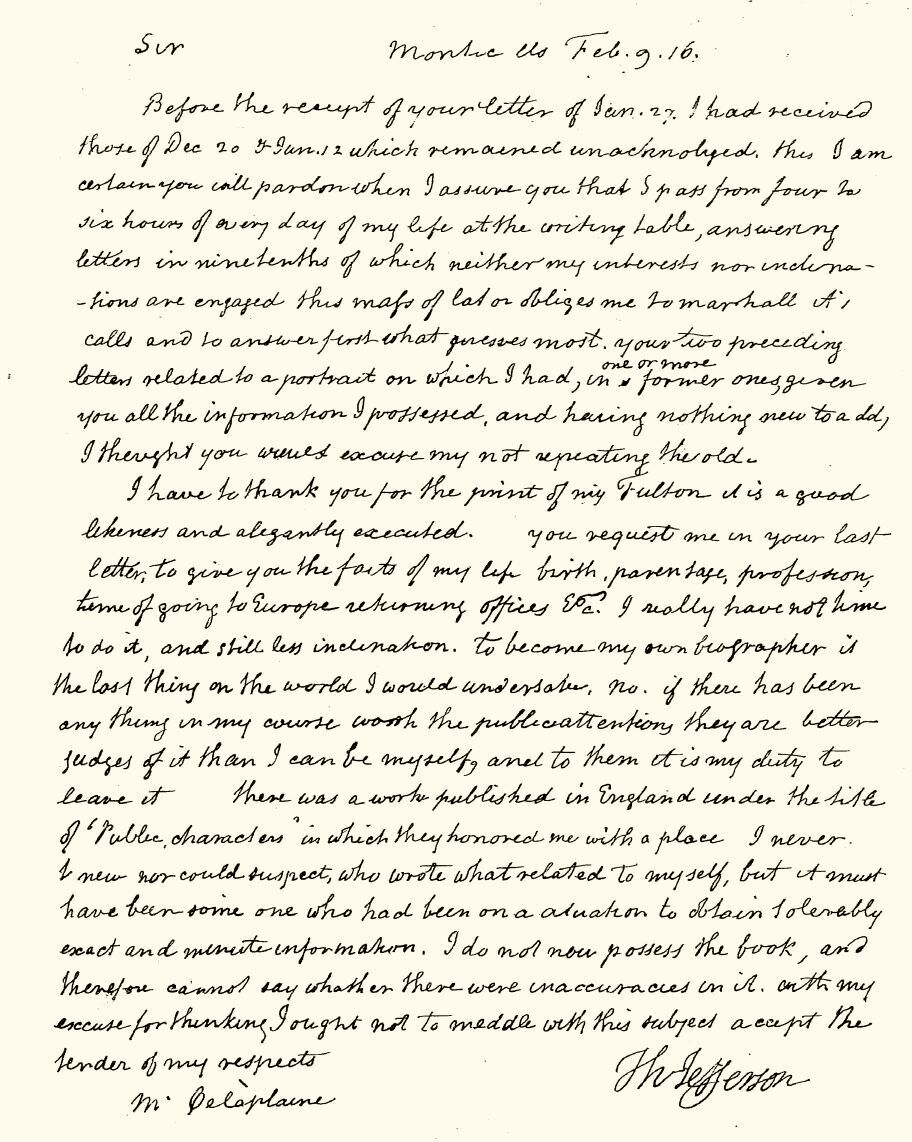 Sir Montic ello Feb. 9. 16.
Before the receipt of your letter of Jan. 27. I had received
those of Dec 20 & Jan. 12 which remained unacknolged. this I am
certain you will pardon when I assure you that I pass from four to
six hours of every day of my life at the writing table, answering
letters in nine tenths of which neither my interests nor inclina-
-tions are engaged this mass of labor obliges me to marshall it's
calls and to answer first what presses most. your two preceding
letters related to a portrait on which I had, in one or more former ones, given
you all the information I possessed, and having nothing new to add,
I thought you would excuse my not repeating the old.
I have to thank you for the print of my Fulton it is a good
likeness and elegantly executed. you request me in your last
letter, to give you the facts of my life birth, parentage, profession,
time of going to Europe returning offices &c. I really have not time
to do it, and still less inclination. to become my own biographer is
the last thing on the world I would undertake. no. if there has been
any thing in my course worth the public attention, they are better
judges of it than I can be myself, and to them it is my duty to
leave it there was a work published in England under the title
of 'Public characters' in which they honored me with a place I never
knew nor could suspect, who wrote what related to myself, but it must
have been some one who had been on a situation to obtain tolerably
exact and minute information. I do not now possess the book, and
therefore cannot say whather there were inaccuracies in it. with my
excuse for thinking I ought not to meddle with this subject accept the
tender of my respects
Th Jefferson
Mr Delaplaine